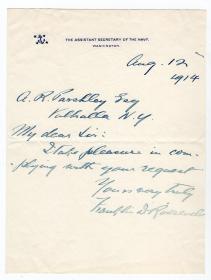 THE ASSISTANT SECRETARY OF THE NAVY.
WASHINGTON.
Aug. 12
1914
A. R. Parshley Esq
Valhalla N.Y.
My dear Sir:
I take pleasure in com-
-plying with your request
Yours very truly
Franklin D Roosevelt